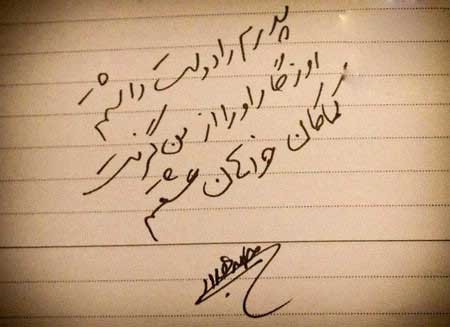 پدرم را دوست داشتم
روزگار او را از من گرفت
کماکان خواهان عشقم